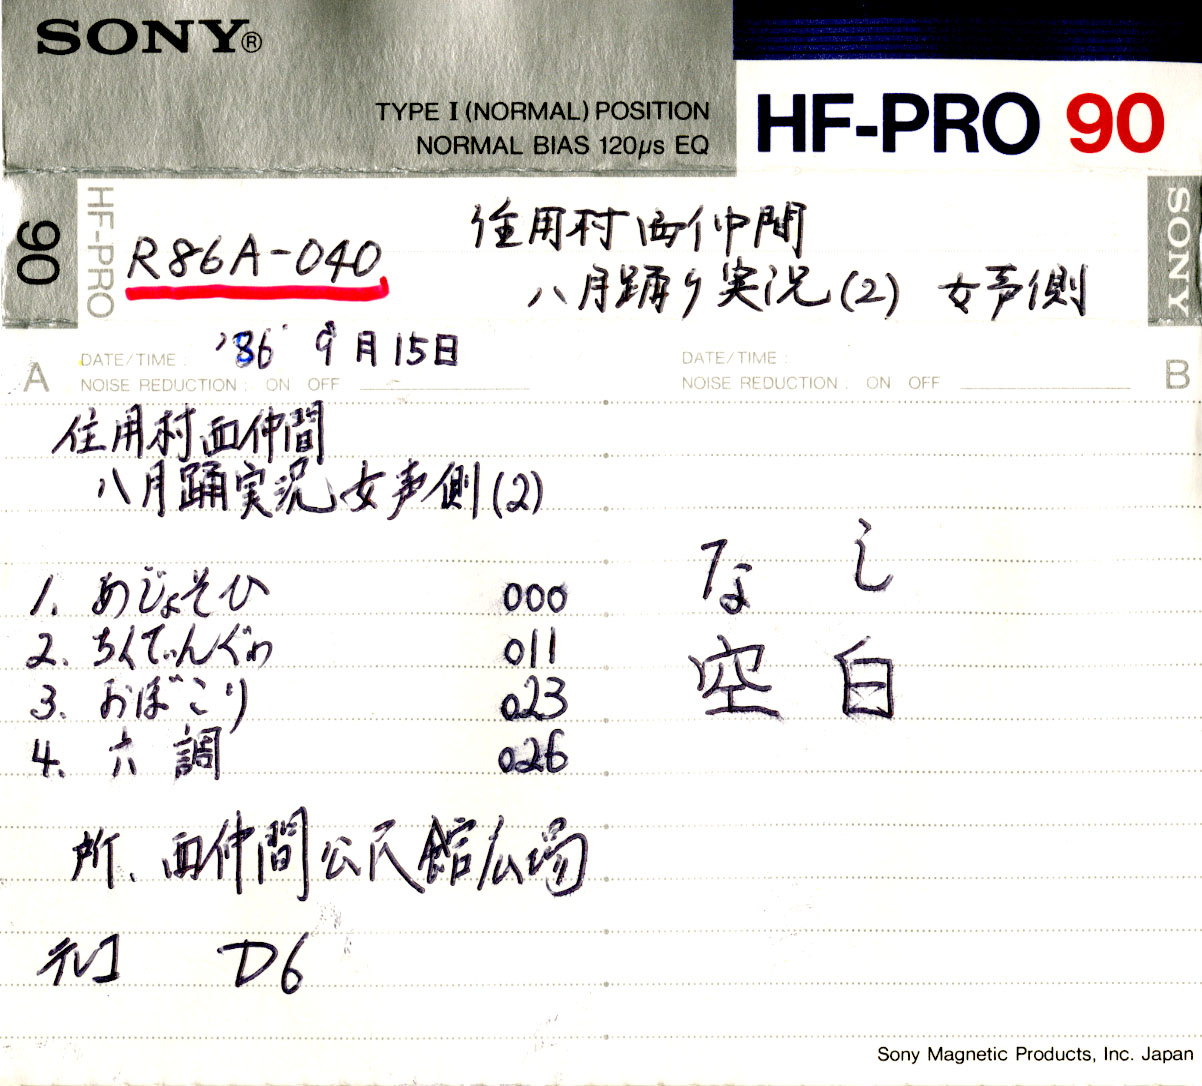 SONY®
TYPE I (NORMAL) POSITION
NORMAL BIAS 120μs EQ
HF-PRO 90
90
HF-PRO
R86A-040
住用村西仲間
八月踊り実況(2) 女声側
SONY
A
DATE/TIME :
'86 9月15日
NOISE REDUCTION : ON OFF
DATE/TIME :
NOISE REDUCTION : ON OFF
B
住用村西仲間
八月踊実況女声側(2)
1. めじょそひ 000
2. ちくてぃんぐゎ 011
3. おぼこり 023
4. 六調 026
所、西仲間公民館広場
テレコ D6
なし
空白
Sony Magnetic Products, Inc. Japan